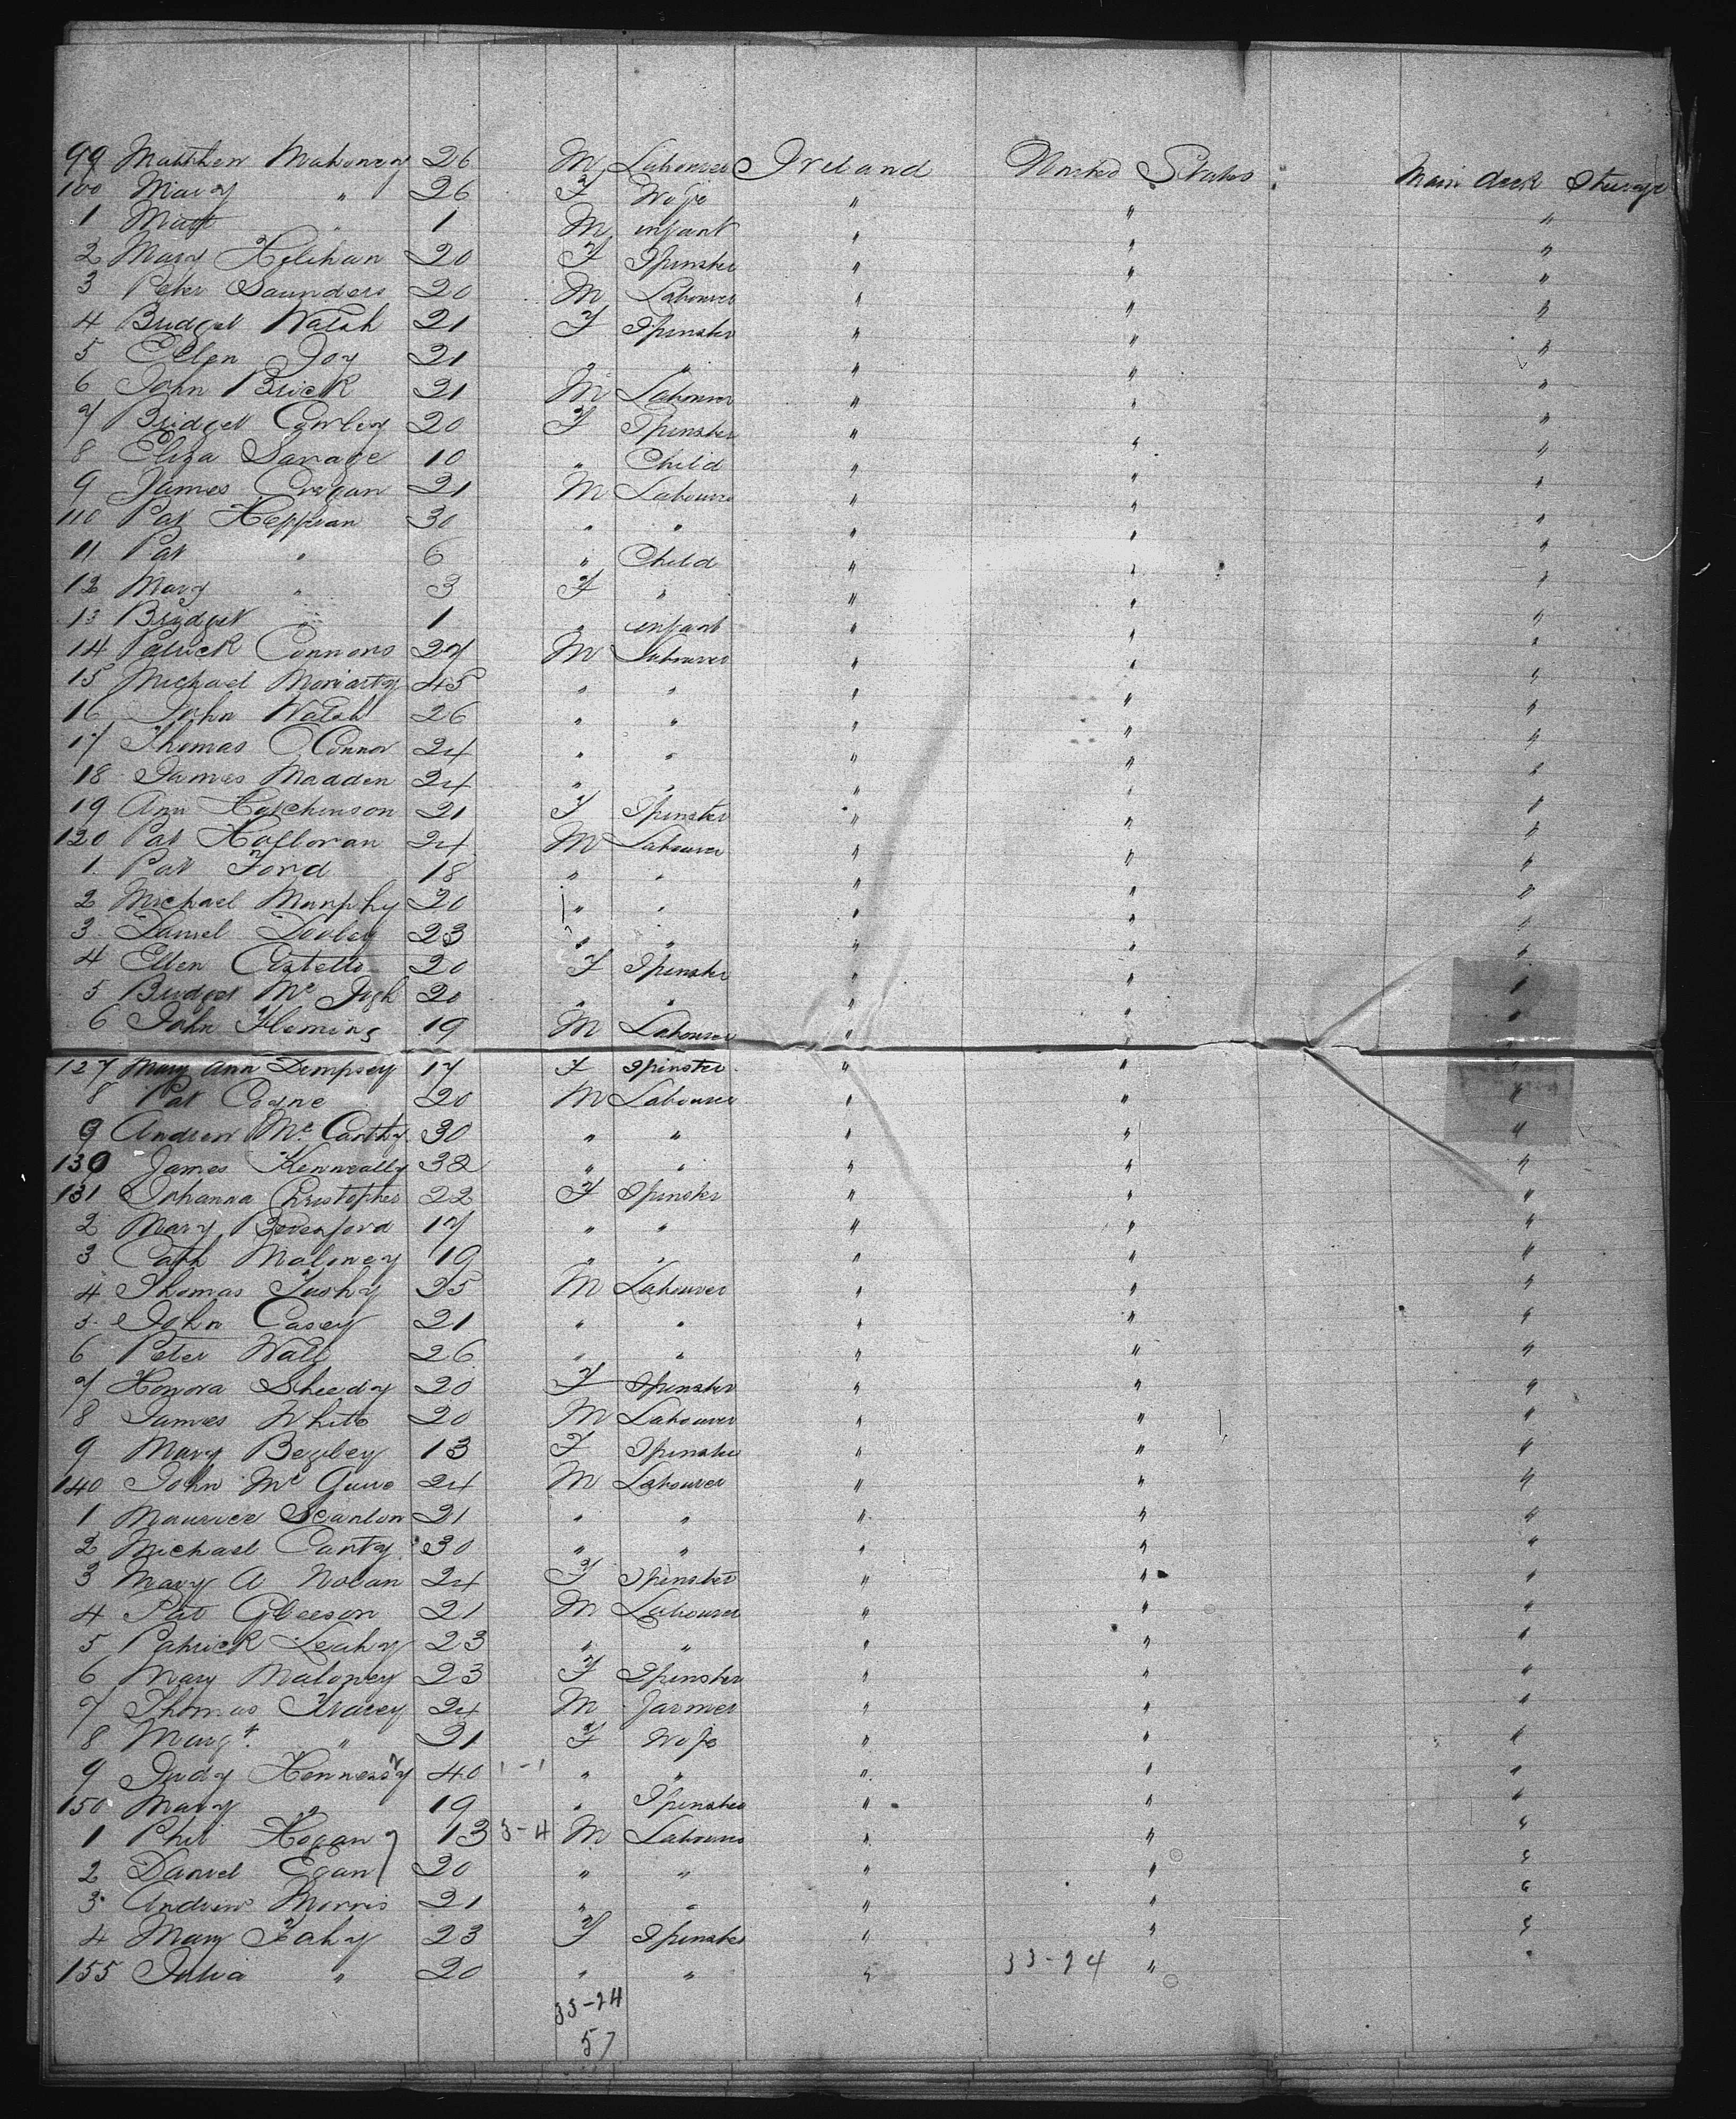 99 Matthew Mahoney 26 M Labourer Ireland United States Main deck Steerage
100 Mary " 26 F Wife " " "
1 Matt " 1 M infant " " "
2 Mary Holihan 20 F Spinster " " "
3 Peter Saunders 20 M Labourer " " "
4 Bridget Walsh 21 F Spinster " " "
5 Ellen Joy 21 " " " " "
6 John Brick 21 M Labourer " " "
7 Bridget Cawley 20 F Spinster " " "
8 Eliza Savage 10 " Child " " "
9 James Cregan 21 M Labourer " " "
110 Pat Heffran 30 " " " " "
11 Pat " 6 " Child " " "
12 Mary " 3 F " " " "
13 Bridget " 1 " infant " " "
14 Patrick Connors 27 M Labourer " " "
15 Michael Moriarty 45 " " " " "
16 John Walsh 26 " " " " "
17 Thomas O'Connor 24 " " " " "
18 James Madden 24 " " " " "
19 Ann Hutchinson 21 F Spinster " " "
120 Pat Holloran 24 M Labourer " " "
1 Pat Ford 18 " " " " "
2 Michael Murphy 20 " " " " "
3 Daniel Dooley 23 " " " " "
4 Ellen Costello 20 F Spinster " " "
5 Bridget Mc 20 " " " " "
6 John Fleming 19 M Labourer " " "
127 Mary Ann Dempsey 17 F Spinster " " "
8 Pat Coyne 20 M Labourer " " "
9 Andrew Mc Carthy 30 " " " " "
130 James Kenneally 32 " " " " "
131 Johanna Christopher 22 F Spinster " " "
2 Mary 17 " " " " "
3 Cath Maloney 19 " " " " "
4 Thomas 25 M Labourer " " "
5 John Casey 21 " " " " "
6 Peter Wall 26 " " " " "
7 Honora Sheedy 20 F Spinster " " "
8 James White 20 M Labourer " " "
9 Mary Begley 13 F Spinster " " "
140 John Mc Guire 24 M Labourer " " "
1 Maurice Scanlon 21 " " " " "
2 Michael Canty 30 " " " " "
3 Mary A Nolan 24 F Spinster " " "
4 Pat Gleeson 21 M Labourer " " "
5 Patrick Leahy 23 " " " " "
6 Mary Maloney 23 F Spinster " " "
7 Thomas Tracey 24 M Farmer " " "
8 Margt. " 21 F Wife " " "
9 Judy Hennessy 40 1-1 " " " " "
150 Mary " 19 " Spinster " " "
1 Phil Hogan 13 3-4 M Labourer " " "
2 Daniel Egan 20 " " " " "
3 Andrew Morris 21 " " " " "
4 Mary Fahy 23 F Spinster " " "
155 Julia " 20 " " " 33-24 " "
33-24
57